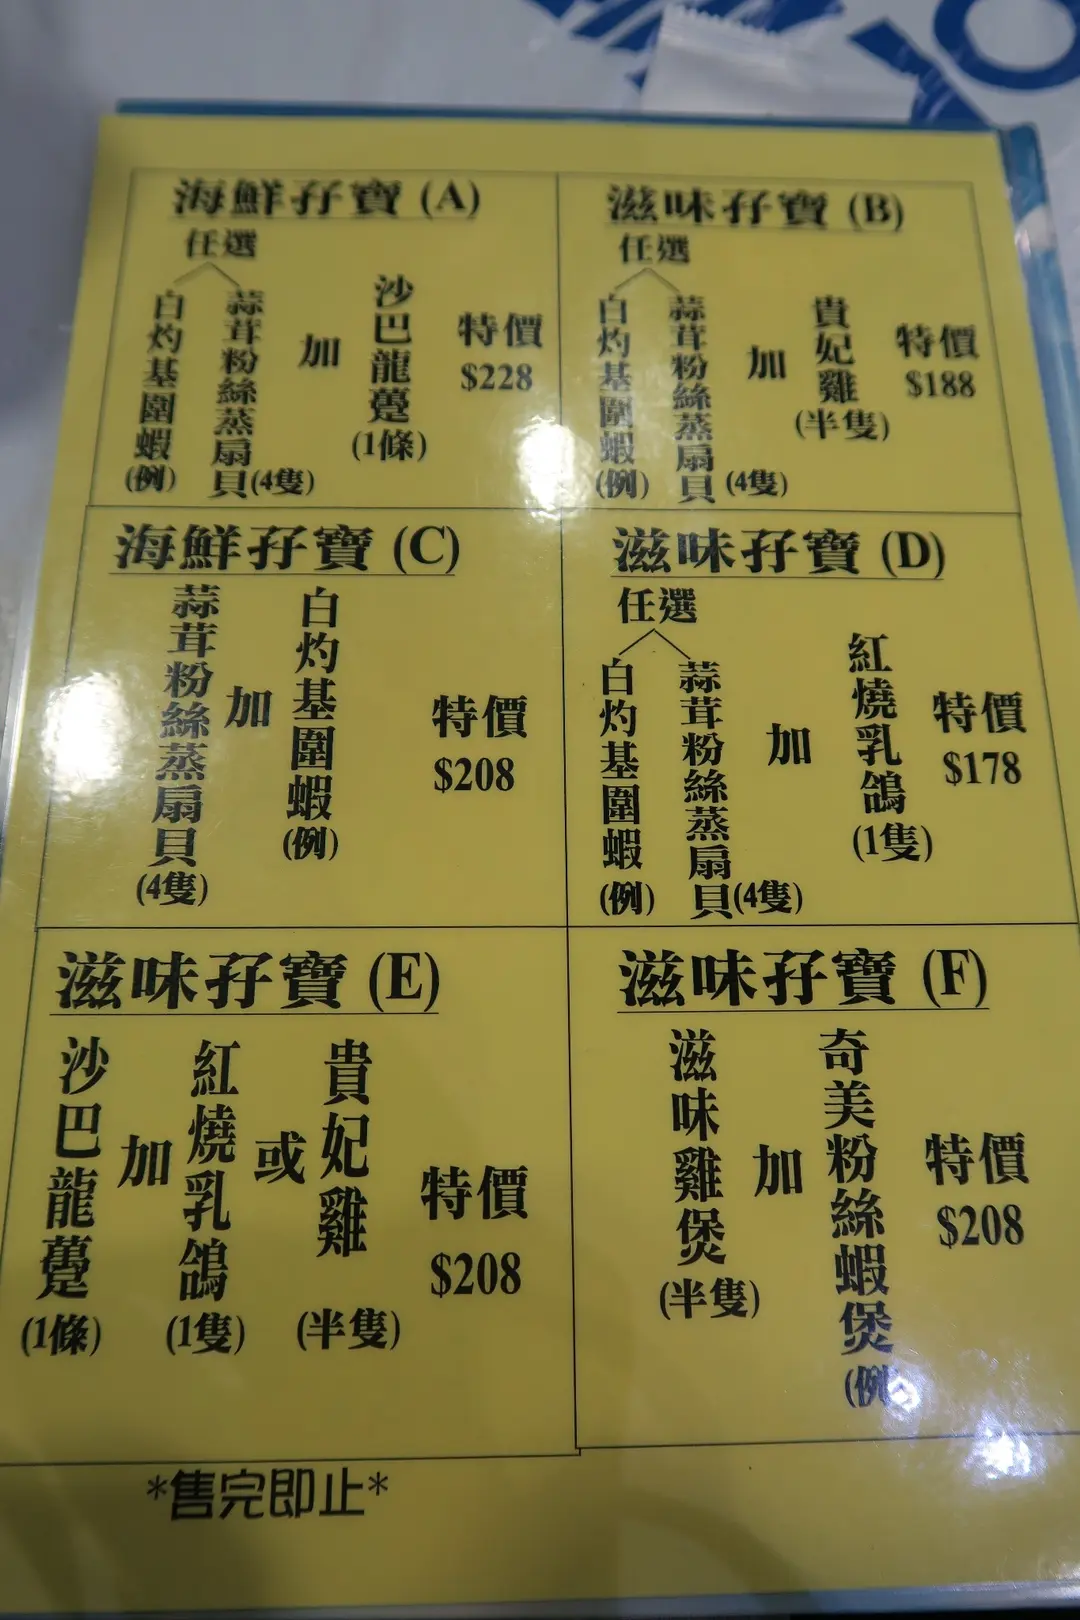 海鮮孖寶 (A)
任選
白灼基圍蝦
(例)
蒜茸粉絲蒸扇貝
(4隻)
加
沙巴龍躉
(1條)
特價
$228
滋味孖寶 (B)
任選
白灼基圍蝦
(例)
蒜茸粉絲蒸扇貝
(4隻)
加
貴妃雞
(半隻)
特價
$188
海鮮孖寶 (C)
蒜茸粉絲蒸扇貝
(4隻)
加
白灼基圍蝦
(例)
特價
$208
滋味孖寶 (D)
任選
白灼基圍蝦
(例)
蒜茸粉絲蒸扇貝
(4隻)
加
紅燒乳鴿
(1隻)
特價
$178
滋味孖寶 (E)
沙巴龍躉
(1條)
加
紅燒乳鴿
(1隻)
或
貴妃雞
(半隻)
特價
$208
滋味孖寶 (F)
滋味雞煲
(半隻)
加
奇美粉絲蝦煲
(例)
特價
$208
*售完即止*